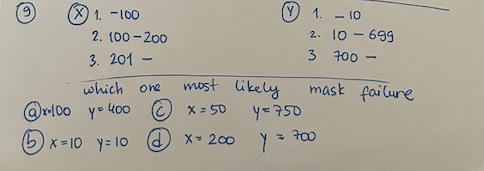 ⑨ Ⓧ 1. -100 Ⓨ 1. - 10
2. 100-200 2. 10 - 699
3. 201 - 3 700 -
which one most likely mask failure
ⓐ x=100 y=400 ⓒ x=50 y=750
ⓑ x=10 y=10 ⓓ x=200 y=700